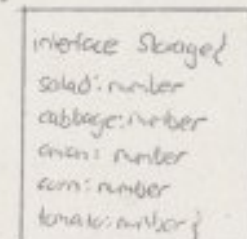 interface Storage{
salad: number
cabbage: number
onion: number
corn: number
tomato: number}